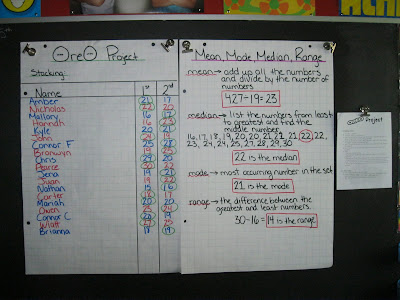 OreO Project
Stacking:
1st 2nd
Name
Amber 21 17
Nicholas 22 20
Mallory 16 17
Hannah 16
Kyle 20 21
John 19
Connor F 25 28
Bronwyn 19 25
Chris 20
Pierce 30
Jena 19 21
Ryan 19
Nathan 15 16
Carter 17
Mariah 20 20
Owen 23 24
Connor C 19
Wyatt 27 25
Brianna 18 19
Mean, Mode, Median, Range
mean → add up all the numbers
and divide by the number
of numbers.
427÷19=23
median → list the numbers from least
to greatest and find the
middle number.
16, 17, 18, 19, 20, 20, 21, 21, 21, 22, 22,
23, 24, 24, 25, 25, 27, 28, 29, 30
22 is the median
mode → most occurring number in the set
21 is the mode
range → the difference between the
greatest and least numbers.
30-16=14 is the range
Project